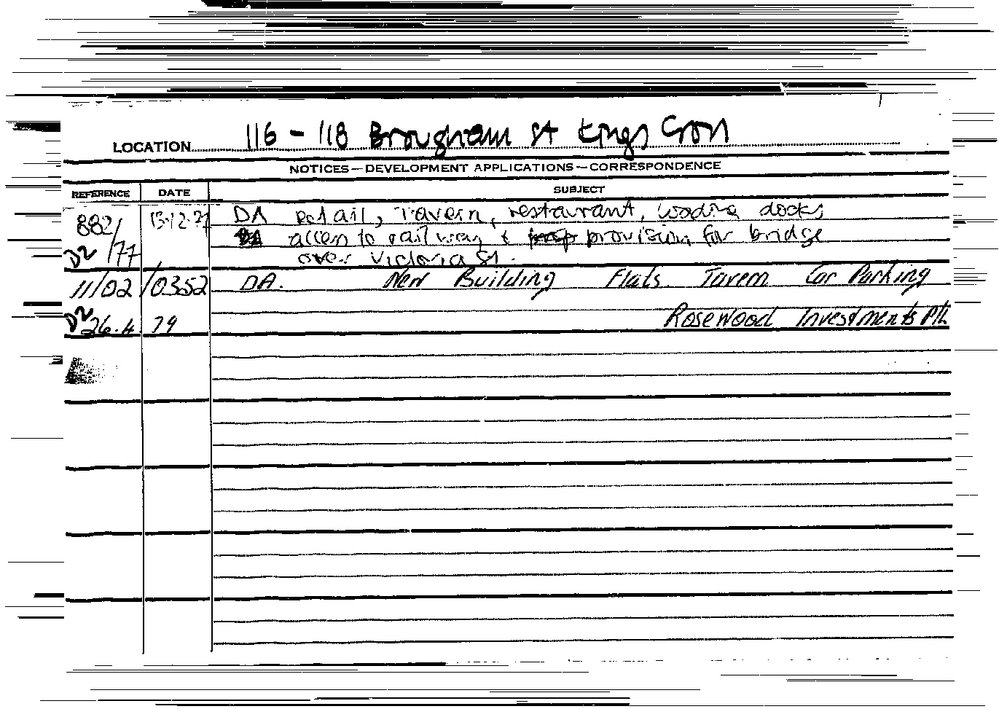 LOCATION 116 - 118 Brougham St Kings Cross
NOTICES—DEVELOPMENT APPLICATIONS—CORRESPONDENCE
REFERENCE DATE SUBJECT
882/ 13.12.77 DA Retail, Tavern, restaurant, loading docks
D2 /77 access to railway & provision for bridge
over Victoria St.
11/02/0352 DA. New Building Flats Tavern Car Parking
D2 26.4.79 Rosewood Investments P/L